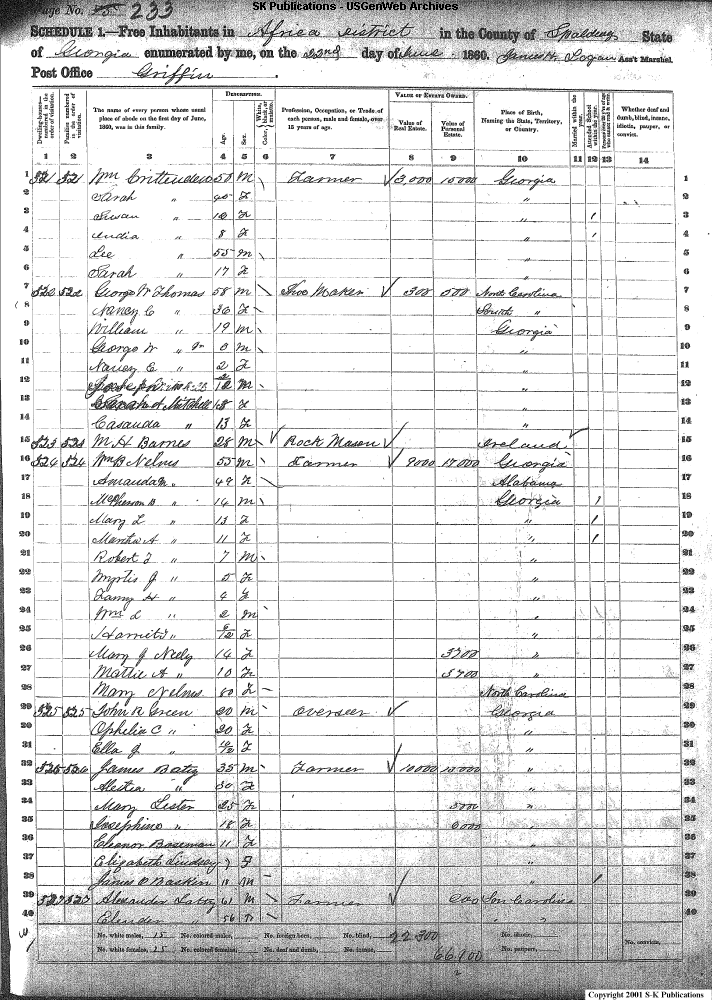 SK Publications - USGenWeb Archives
Page No. 233
SCHEDULE 1.—Free Inhabitants in Africa District in the County of Spalding State
of Georgia enumerated by me, on the 22nd day of June 1860. James H. Logan Ass't Marshal.
Post Office Griffin.
Dwelling-houses— numbered in the order of visitation.
Families numbered in the order of visitation.
The name of every person whose usual place of abode on the first day of June, 1860, was in this family.
DESCRIPTION.
Age.
Sex.
Color, White, black, or mulatto.
Profession, Occupation, or Trade of each person, male and female, over 15 years of age.
VALUE OF ESTATE OWNED.
Value of Real Estate.
Value of Personal Estate.
Place of Birth, Naming the State, Territory, or Country.
Married within the year.
Attended School within the year.
Whether deaf and dumb, blind, insane, idiotic, pauper, or convict.
1 2 3 4 5 6 7 8 9 10 11 12 13 14
1 521 521 Wm Crittenden 50 M Farmer 3,000 10000 Georgia 1
2 Sarah " 40 F " 2
3 Susan " 10 F " 1 3
4 India " 8 F " 1 4
5 Lee " 55 M " 5
6 Sarah " 17 F " 6
7 522 522 George W Thomas 58 M Shoe Maker 300 500 North Carolina 7
8 Nancy C " 36 F South " 8
9 William " 19 M Georgia 9
10 George W " Jr M " 10
11 Nancy C " 2 F " 11
12 M " 12
13 Sarah A Mitchell 18 F " 13
14 Casauda " 13 F " 14
15 523 523 M H Barnes 28 M Rock Mason Ireland 15
16 524 524 Wm B Nelms 55 M Farmer 9000 17000 Georgia 16
17 Amanda M " 49 F Alabama 17
18 McPherson B " 14 M Georgia 1 18
19 Mary L " 13 F " 1 19
20 Martha A " 11 F " 1 20
21 Robert F " 7 M " 21
22 Myrtis J " 5 F " 22
23 Fanny H " 4 F " 23
24 Wm L " 2 M " 24
25 Harriet " F " 25
26 Mary J Neely 14 F 5700 " 26
27 Mattie A " 10 F 5700 " 27
28 Mary Nelms 80 F North Carolina 28
29 525 525 John R Green 20 M Overseer Georgia 29
30 Ophelia C " 20 F " 30
31 Ella J " F " 31
32 526 James Batey 35 M Farmer 10000 15000 " 32
33 30 F " 33
34 Mary Lester 25 F 5000 " 34
35 Josephine " 18 F 6000 " 35
36 Eleanor Boseman 11 F " 36
37 Elizabeth Lindsay 7 F " 37
38 James O Baskin 11 M " 1 38
39 527 527 Alexander 61 M Farmer 200 Sou Carolina 39
40 Elender " 56 F " " 40
No. white males, 15 No. colored males, No. foreign born, No. blind, 22 300 No. idiotic,
No. white females, 25 No. colored females, No. deaf and dumb, No. insane, 66,100 No. paupers, No. convicts,
Copyright 2001 S-K Publications